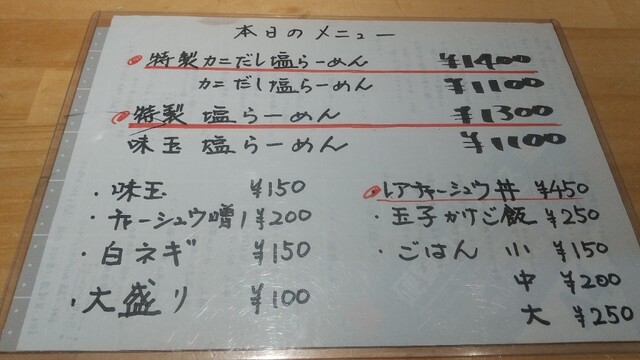 本日のメニュー
特製カニだし塩らーめん ¥1400
カニだし塩らーめん ¥1100
特製 塩らーめん ¥1300
味玉 塩らーめん ¥1100
・味玉 ¥150
・チャーシュウ増し ¥200
・白ネギ ¥150
・大盛り ¥100
レアチャーシュウ丼 ¥450
・玉子かけご飯 ¥250
・ごはん 小 ¥150
中 ¥200
大 ¥250